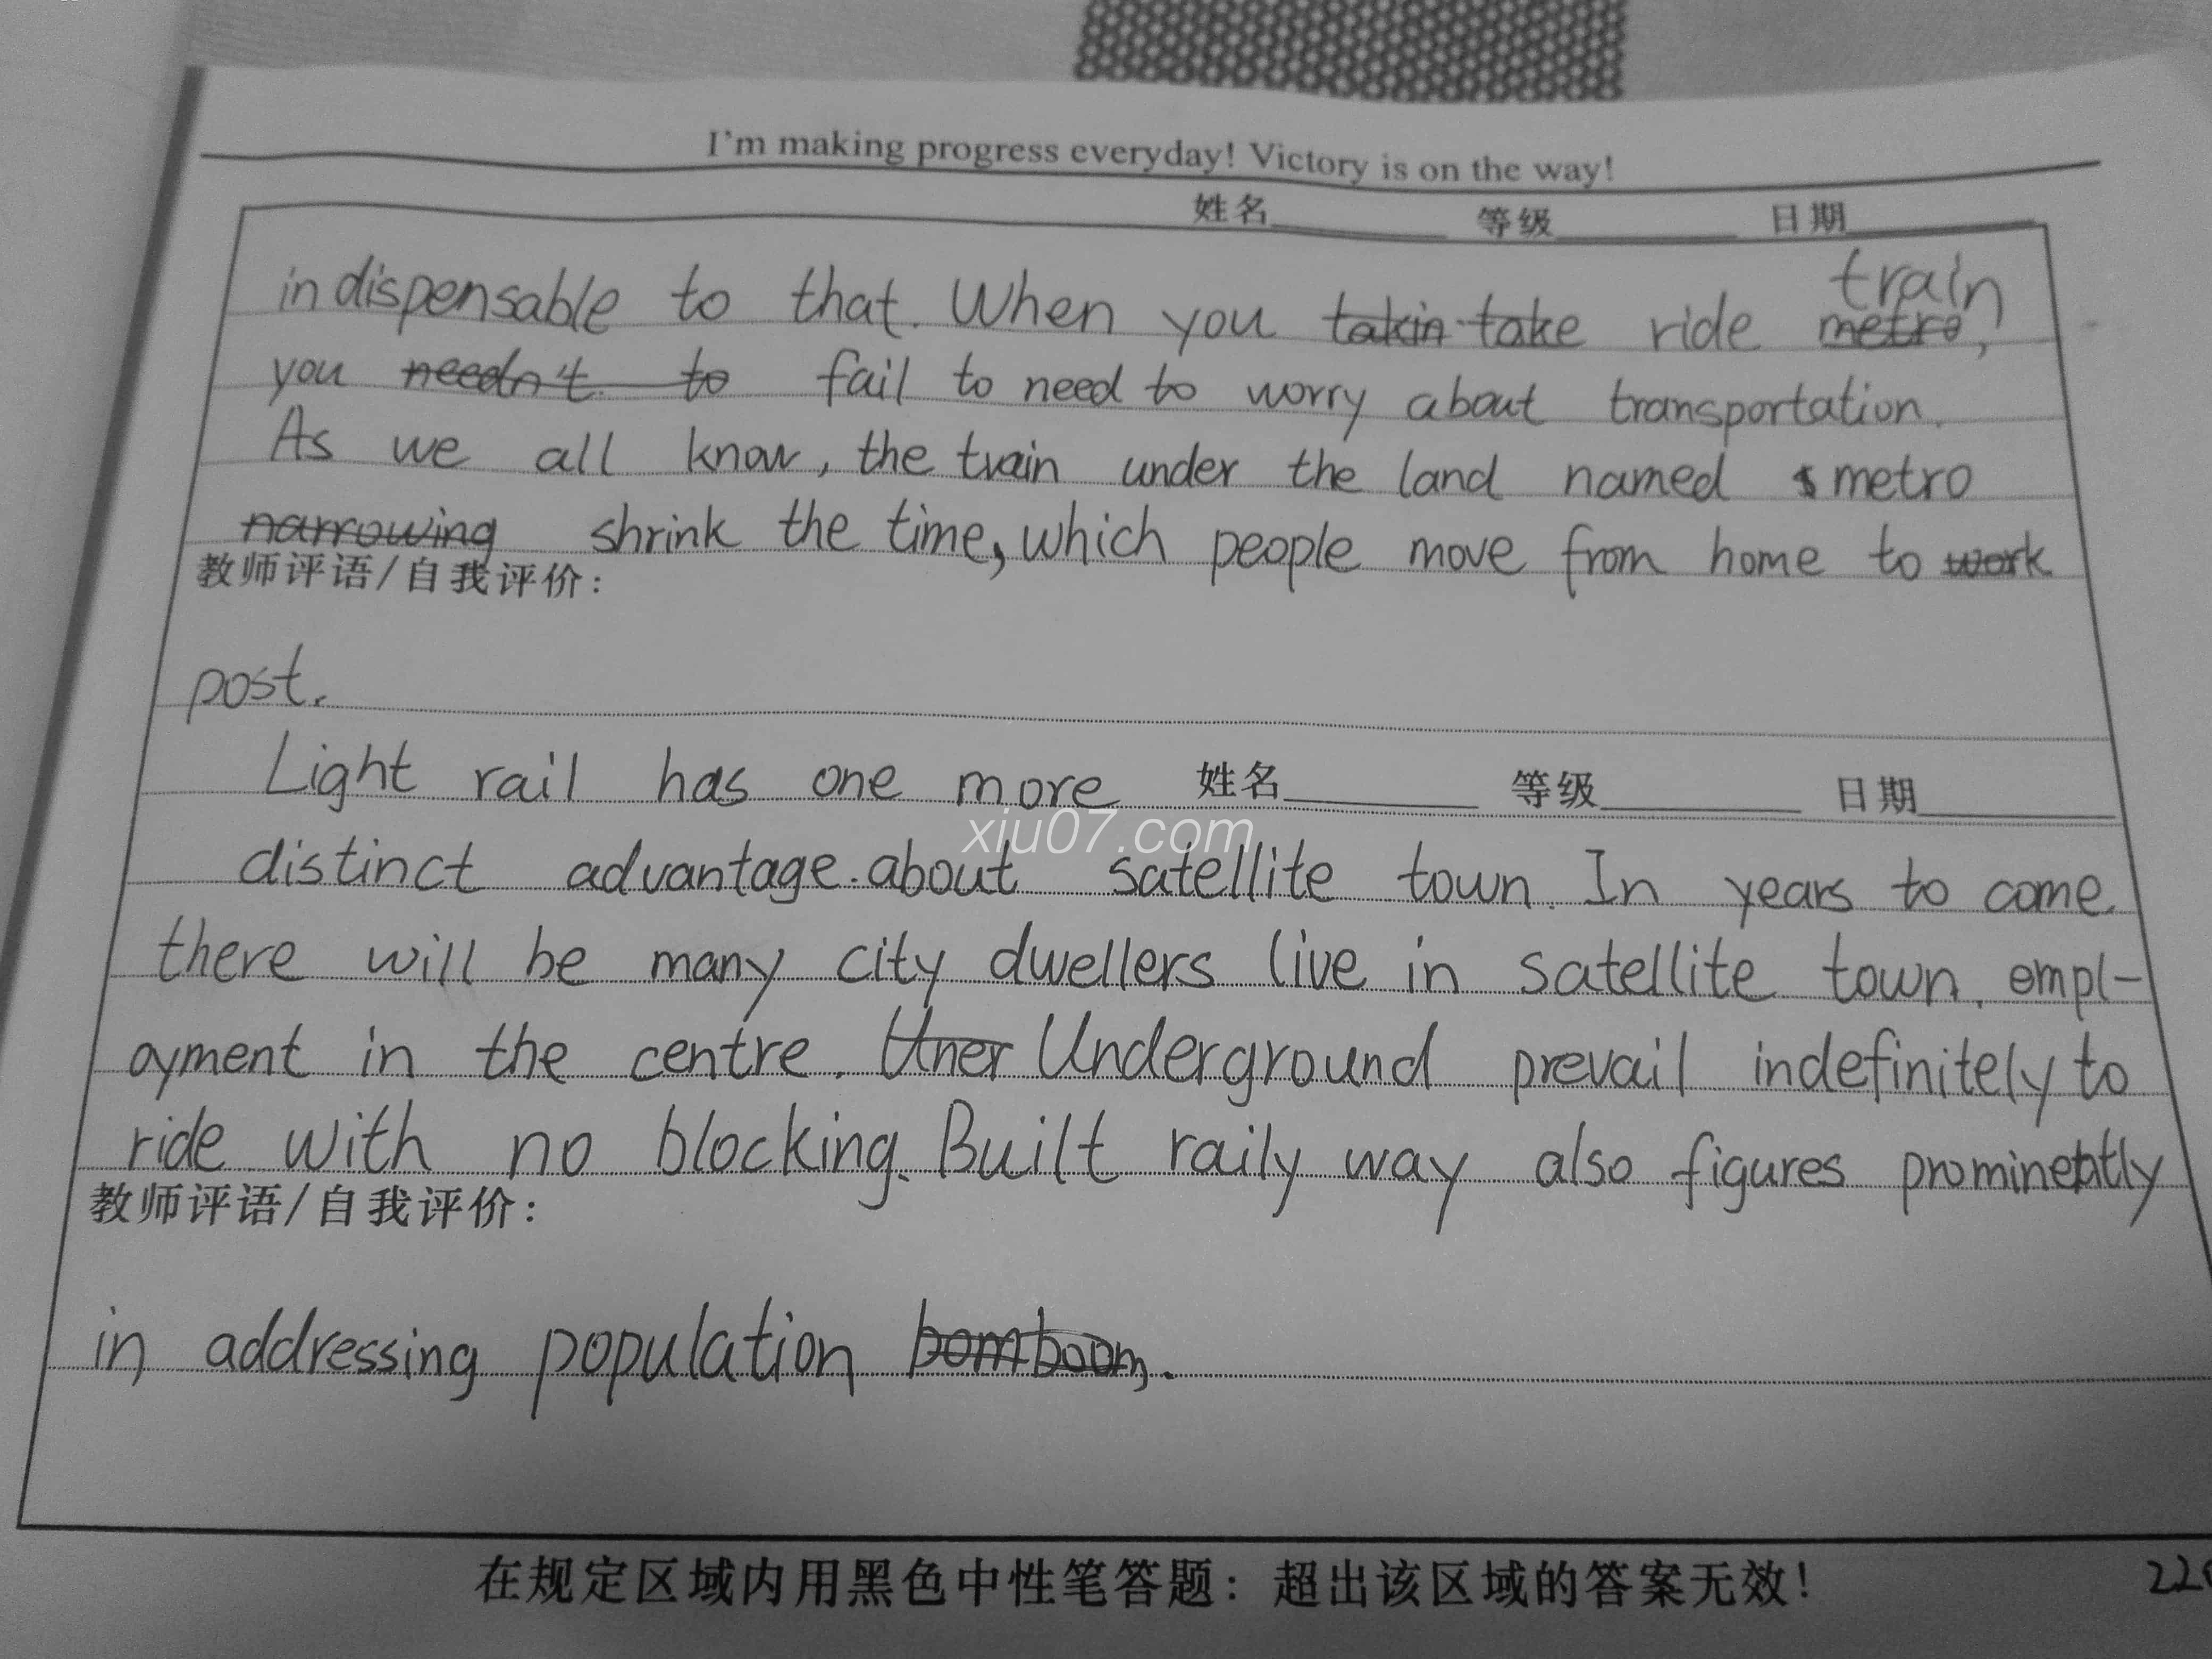 I'm making progress everyday! Victory is on the way!
姓名 等级 日期
train
indispensable to that. When you takin take ride metro,
you needn't to fail to need to worry about transportation.
As we all know, the train under the land named metro
narrowing shrink the time, which people move from home to work
教师评语/自我评价:
post.
Light rail has one more 姓名 等级 日期
xiu07.com
distinct advantage. about satellite town. In years to come.
there will be many city dwellers live in satellite town. empl-
oyment in the centre. Uner Underground prevail indefinitely to
ride with no blocking. Built raily way also figures prominently
教师评语/自我评价:
in addressing population bomboom.
在规定区域内用黑色中性笔答题: 超出该区域的答案无效!